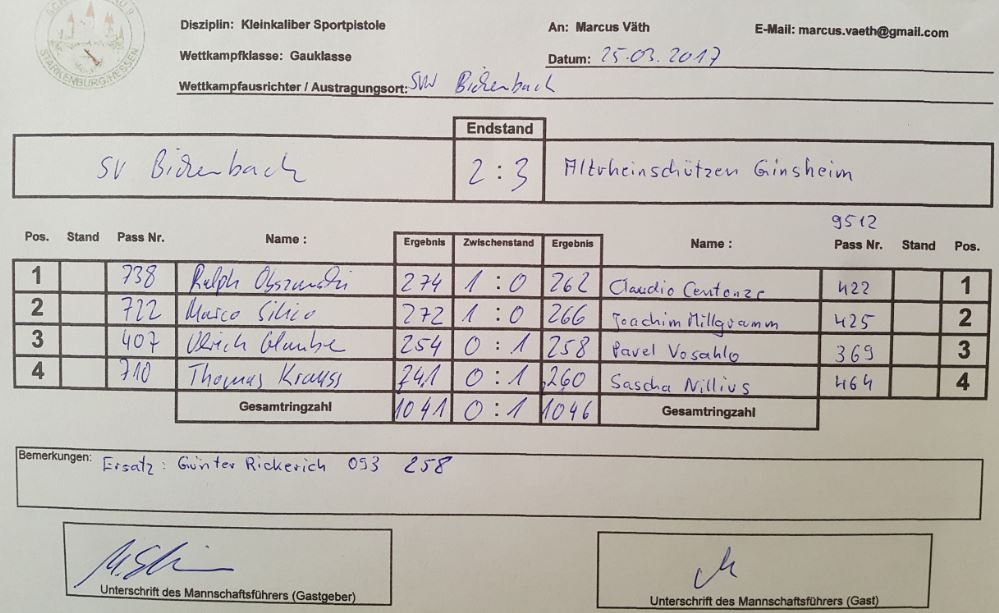 STARKENBURG/HESSEN
Disziplin: Kleinkaliber Sportpistole An: Marcus Väth E-Mail: marcus.vaeth@gmail.com
Wettkampfklasse: Gauklasse Datum: 25.03.2017
Wettkampfausrichter / Austragungsort: SVW Bickenbach
Endstand
SV Bickenbach 2 : 3 Altrheinschützen Ginsheim
9512
Pos. Stand Pass Nr. Name : Ergebnis Zwischenstand Ergebnis Name : Pass Nr. Stand Pos.
1 738 Ralph 274 1 : 0 262 Claudio Centonze 422 1
2 722 Marco Silico 272 1 : 0 266 Joachim Millgramm 425 2
3 407 Ulrich 254 0 : 1 258 Pavel Vosahlo 369 3
4 710 Thomas Krauss 241 0 : 1 260 Sascha Nillius 464 4
Gesamtringzahl 1041 0 : 1 1046 Gesamtringzahl
Bemerkungen: Ersatz: Günter Rickerich 093 258
Unterschrift des Mannschaftsführers (Gastgeber) Unterschrift des Mannschaftsführers (Gast)